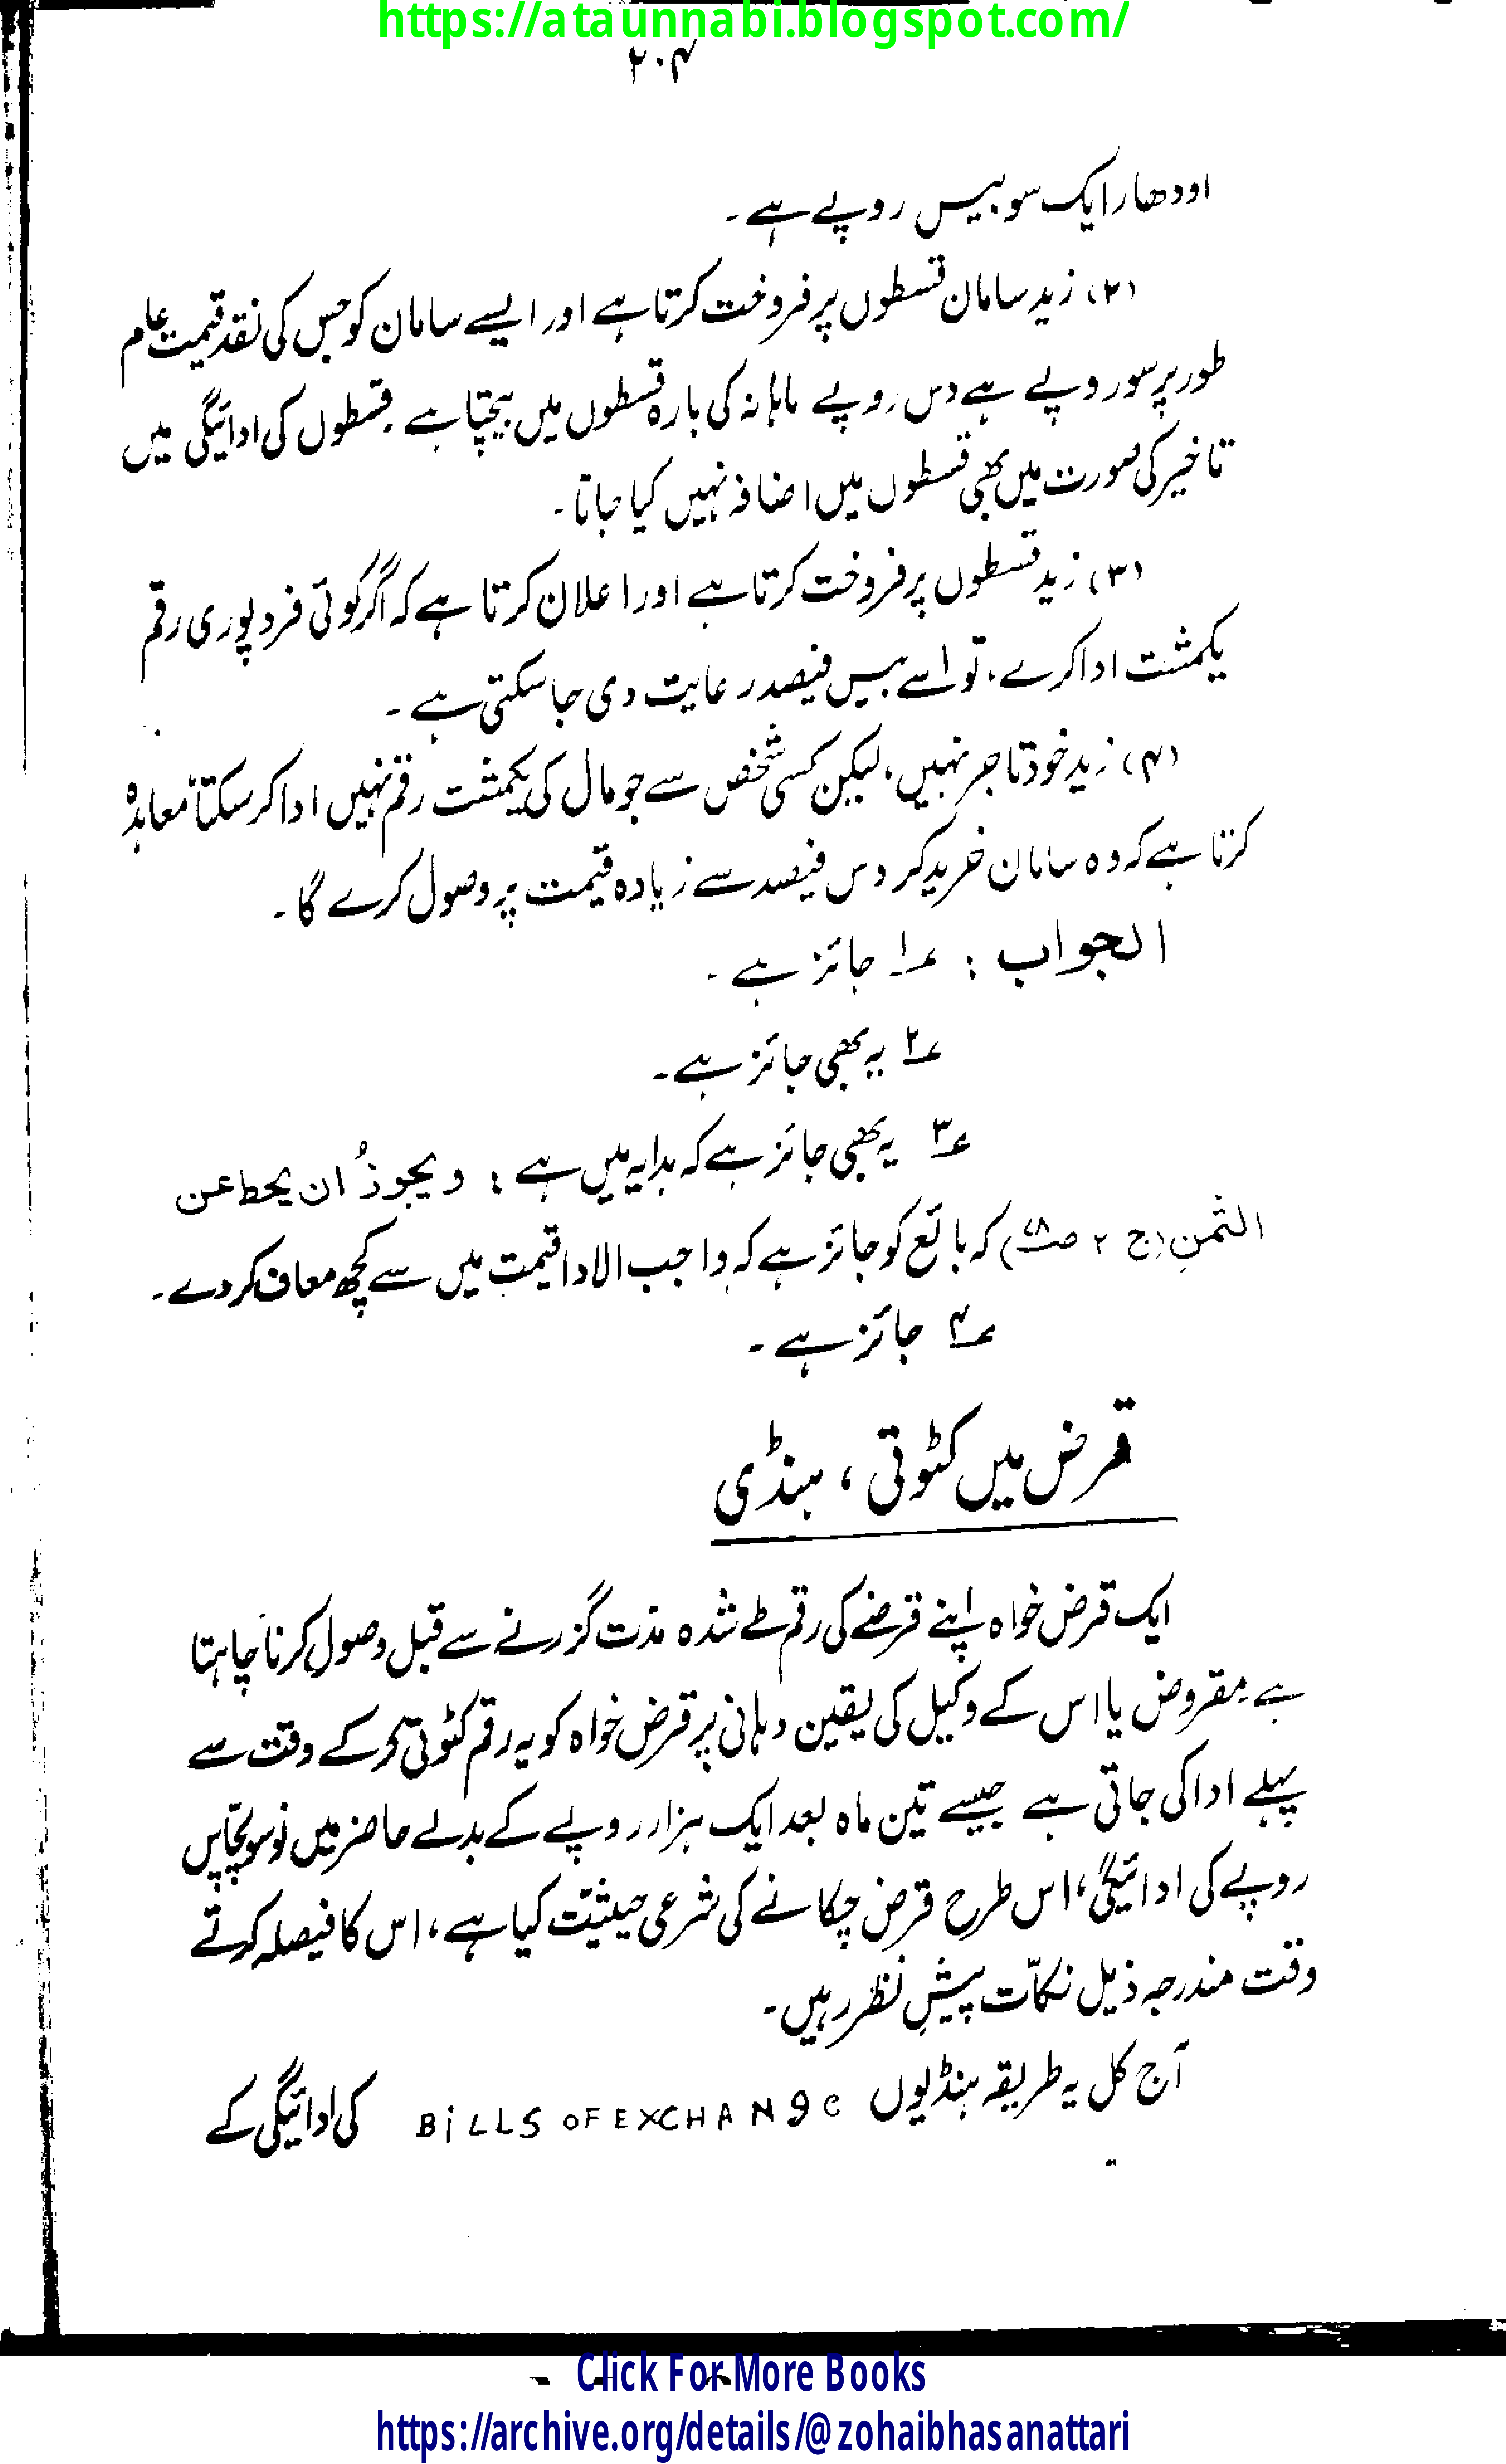 https://ataunnabi.blogspot.com/
۲۰۴
اودھار ایک سو بیس روپے ہے۔
(۲) زید سامان قسطوں پر فروخت کرتا ہے اور ایسے سامان کو جس کی نقد قیمت عام
طور پر سو روپے ہے دس روپے ماہانہ کی بارہ قسطوں میں بیچتا ہے۔ قسطوں کی ادائیگی میں
تاخیر کی صورت میں بھی قسطوں میں اضافہ نہیں کیا جاتا۔
(۳) زید قسطوں پر فروخت کرتا ہے اور اعلان کرتا ہے کہ اگر کوئی فرد پوری رقم
یکمشت ادا کرے، تو اسے بیس فیصد رعایت دی جا سکتی ہے۔
(۴) زید خود تاجر نہیں، لیکن کسی شخص سے جو مال کی یکمشت رقم نہیں ادا کر سکتا معاہدہ
کرتا ہے کہ وہ سامان خرید کر دس فیصد سے زیادہ قیمت پر وصول کرے گا۔
الجواب : ؏۱ جائز ہے۔
؏۲ یہ بھی جائز ہے۔
؏۳ یہ بھی جائز ہے کہ ہدایہ میں ہے : ویجوزُ ان یحط عن
الثمنِ (ج ۲ ص) کہ بائع کو جائز ہے کہ واجب الادا قیمت میں سے کچھ معاف کر دے۔
؏۴ جائز ہے۔
قرض میں کٹوتی ، ہنڈی
ایک قرض خواہ اپنے قرضے کی رقم طے شدہ مدت گزرنے سے قبل وصول کرنا چاہتا
ہے۔ مقروض یا اس کے وکیل کی یقین دہانی پر قرض خواہ کو یہ رقم کٹوتی کر کے وقت سے
پہلے ادا کی جاتی ہے جیسے تین ماہ بعد ایک ہزار روپے کے بدلے حاضر میں نو سو پچاس
روپے کی ادائیگی، اس طرح قرض چکانے کی شرعی حیثیت کیا ہے، اس کا فیصلہ کرتے
وقت مندرجہ ذیل نکات پیشِ نظر رہیں۔
آج کل یہ طریقہ ہنڈیوں BiLLS OF EXCHANge کی ادائیگی کے
Click For More Books
https://archive.org/details/@zohaibhasanattari